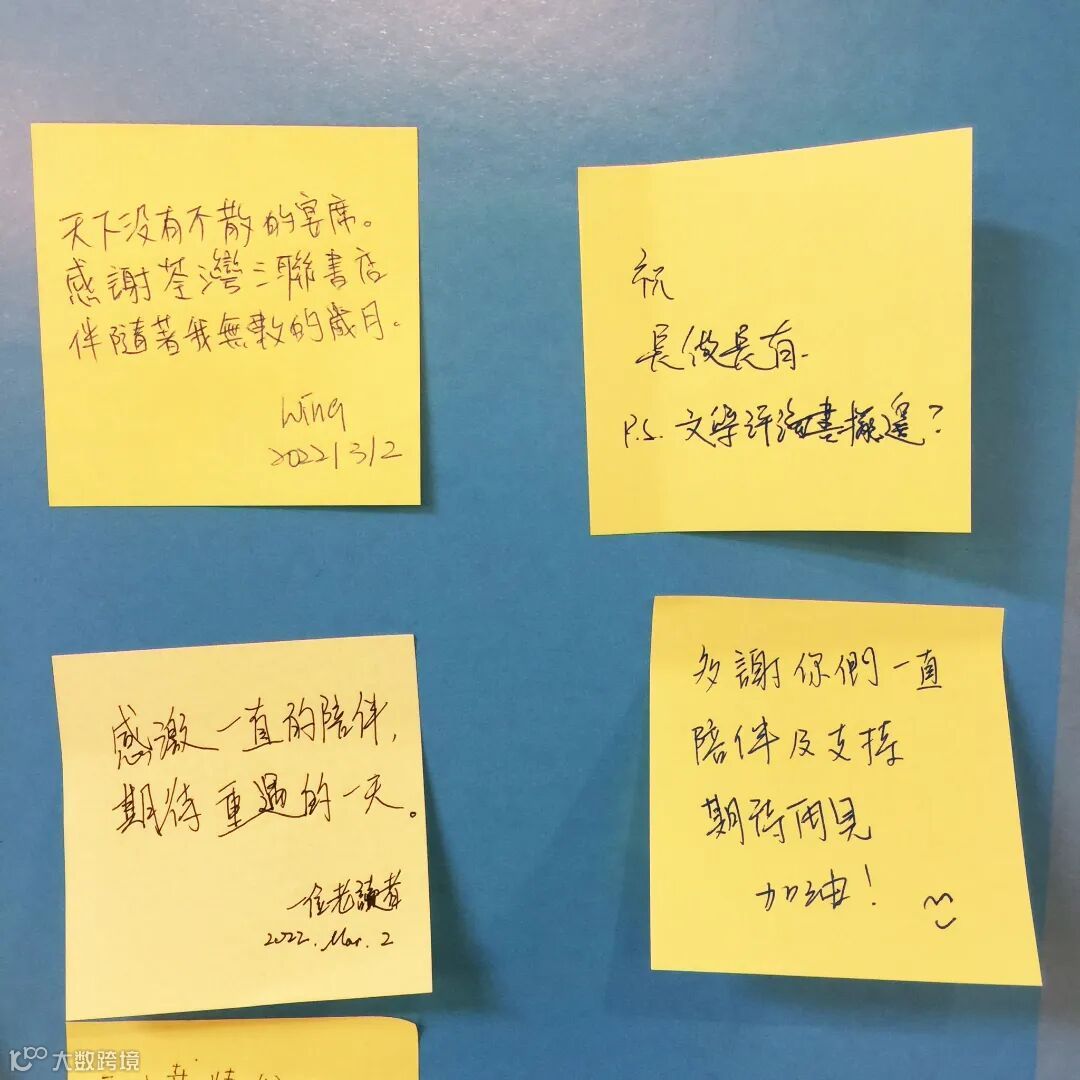 天下没有不散的宴席。
感謝荃灣三聯書店
伴隨著我無數的歲月.
Wing
2022/3/2
祝
長做長有.
P.S. 文學評論書擇選?
感激一直的陪伴,
期待重遇的一天。
一位老讀者
2022. Mar. 2
多謝你們一直
陪伴及支持
期待再見
加油!
大数跨境